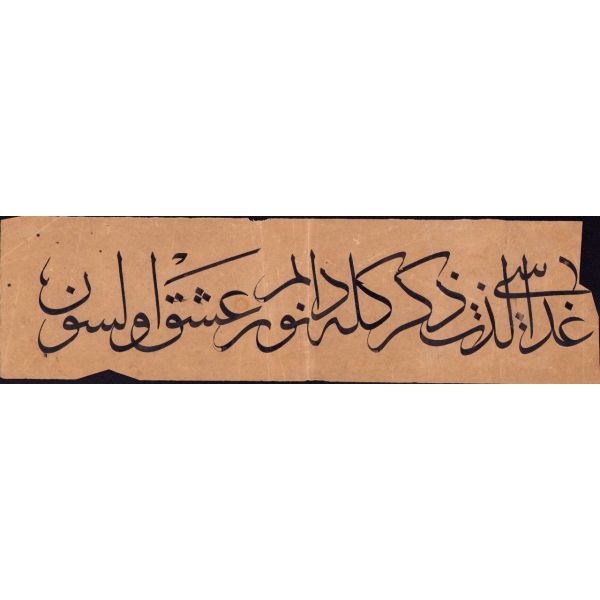 غداسی لذت ذكركله دائم نور عشق اولسون